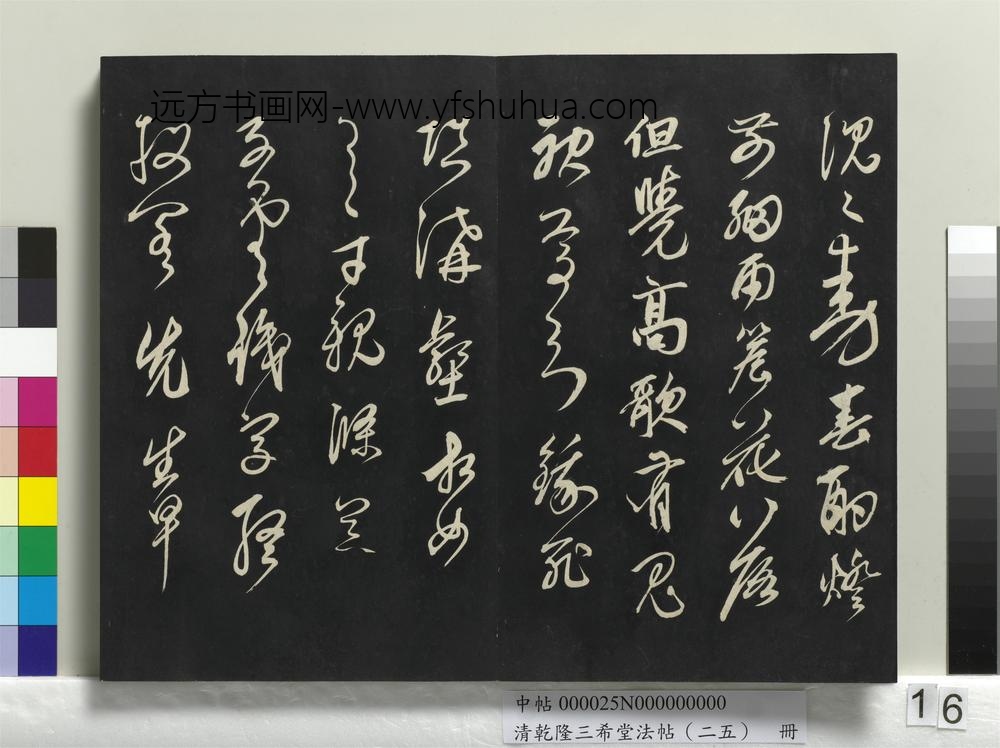 远方书画网-www.yfshuhua.com
沉々動春酌燈
前細雨簷花落
但覺高歌有鬼
神焉知餓死
填溝壑相如
逸才親滌器
子雲識字終
投閣先生早
中帖 000025N000000000
清乾隆三希堂法帖（二五） 冊
16